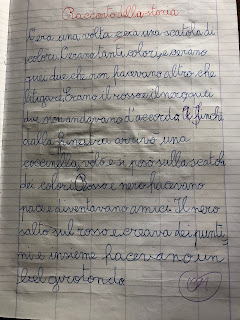 Racconto della storia
C'era una volta c'era una scatola di
colori. C'erano tanti colori, e c'erano
quei due che non facevano altro che
litigare. Erano il rosso e il nero quei
due non andavano d'accordo. Finché
dalla finestra arrivò una
coccinella, volò e si posò sulla scatola
dei colori. Rosso e nero facevano
pace e diventavano amici. Il nero
saltò sul rosso e creava dei punti
ni e insieme facevano un
bel girotondo